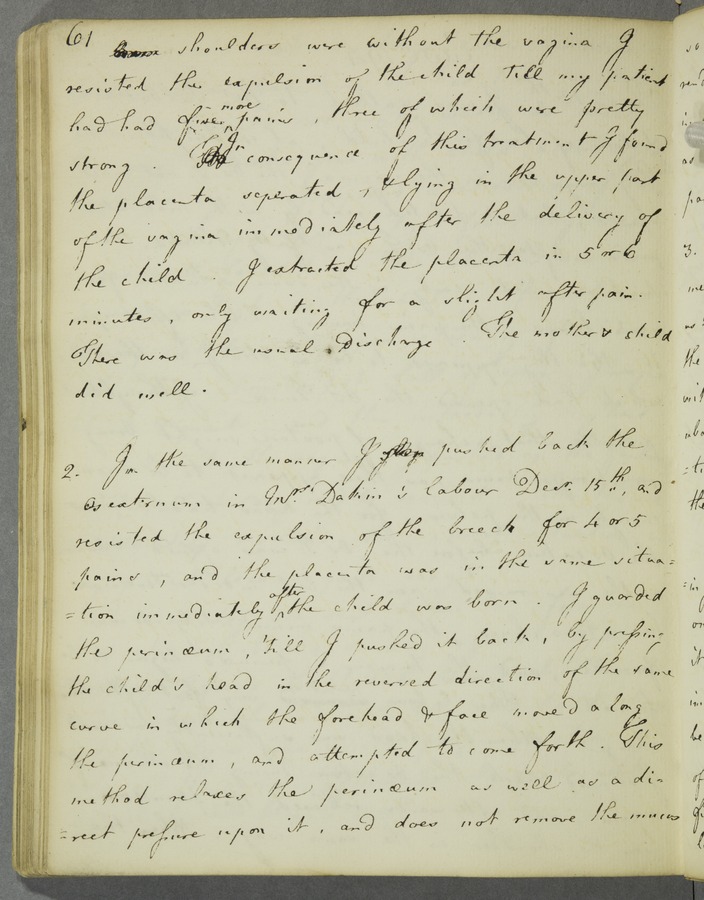 61
shoulders were without the vagina I
resisted the expulsion of the child till my patient
had had more pains, three of which were pretty
strong. In consequence of this treatment I found
the placenta seperated, & lying in the upper part
of the vagina immediately after the delivery of
the child. I extracted the placenta in 5 or 6
minutes, only waiting for a slight after pain.
There was the usual Discharge. The mother & child
did well.
2. In the same manner I pushed back the
os externum in Mrs. Dakin's labour Decr. 15th, and
resisted the expulsion of the breech for 4 or 5
pains, and the placenta was in the same situa=
=tion immediately after the child was born. I guarded
the perinæum, till I pushed it back, by pressing
the child's head in the reversed direction of the same
curve in which the forehead & face moved along
the perinæum, and attempted to come forth. This
method relaxes the perinæum as well as a di=
=rect pressure upon it, and does not remove the mucus